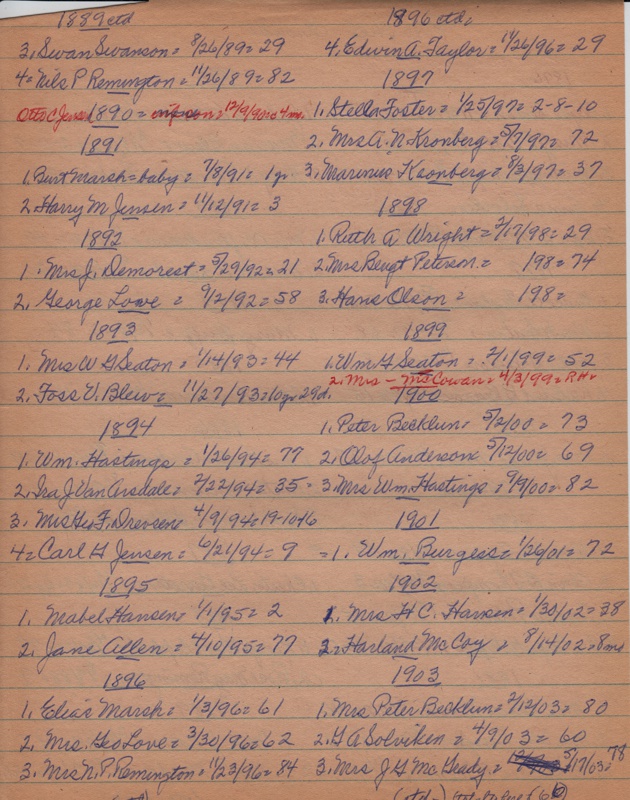 1889 ctd
3. Swan Swanson = 8/26/89 = 29
4 = Nils P Remington = 11/26/89 = 82
Otto C Jensen 1890 = 12/9/90 = 4 mo.
1891
1. Burt Marsh = baby = 7/8/91 = 1 yr.
2. Harry M Jensen = 11/12/91 = 3
1892
1. Mrs J. Demorest = 5/29/92 = 21
2. George Lowe = 9/2/92 = 58
1893
1. Mrs W G Seaton = 1/14/93 = 44
2. Foss V. Blew = 11/27/93 = 10 yr 29 d.
1894
1. Wm. Hastings = 1/26/94 = 77
2. Ira J Van Arsdale = 2/22/94 = 35 =
3. Mrs Geo F. Drevsen = 4/9/94 = 19-10-16
4 = Carl G Jensen = 6/21/94 = 9
1895
1. Mabel Hansen = 1/1/95 = 2
2. Jane Allen = 4/10/95 = 77
1896
1. Elias Marsh = 1/3/96 = 61
2. Mrs. Geo Love = 3/30/96 = 62
3. Mrs N. P. Remington = 11/23/96 = 84
1896 ctd.
4. Edwin A. Taylor = 11/26/96 = 29
1897
1. Stella Foster = 1/25/97 = 2-8-10
2. Mrs A. N Kronberg = 5/7/97 = 72
3. Marinus Kronberg = 8/3/97 = 37
1898
1. Ruth A Wright = 2/17/98 = 29
2. Mrs Bengt Peterson = 198 = 74
3. Hans Olson = 198 =
1899
1. Wm G Seaton = 2/1/99 = 52
2. Mrs - McCowan = 4/3/99 = RH =
1900
1. Peter Becklun = 5/2/00 = 73
2. Olof Anderson = 5/12/00 = 69
3. Mrs Wm. Hastings = 9/19/00 = 82
1901
= 1. Wm. Burgess = 1/26/01 = 72
1902
1. Mrs H C. Hansen = 1/30/02 = 38
2. Harland McCoy = 8/14/02 = 8 ms
1903
1. Mrs. Peter Becklun = 2/12/03 = 80
2. G A Solviken = 4/9/03 = 60
3. Mrs J G McGrady = 5/17/03 = 78